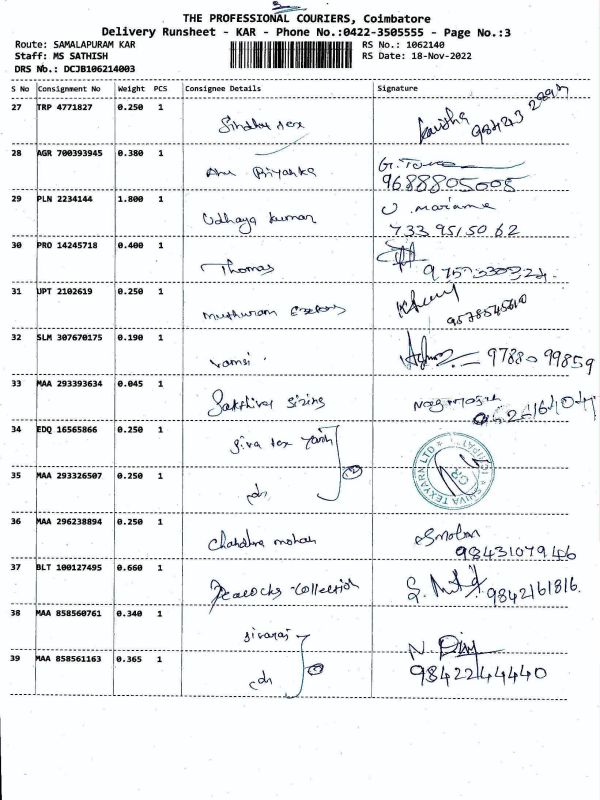 THE PROFESSIONAL COURIERS, Coimbatore
Delivery Runsheet - KAR - Phone No.:0422-3505555 - Page No.:3
Route: SAMALAPURAM KAR RS No.: 1062140
Staff: MS SATHISH RS Date: 18-Nov-2022
DRS No.: DCJB106214003
S No Consignment No Weight PCS Consignee Details Signature
27 TRP 4771827 0.250 1
28 AGR 700393945 0.380 1 Anu Priyanka
9688805005
29 PLN 2234144 1.800 1 Udhaya kumar
73395150 62
30 PRO 14245718 0.400 1 Thomas
31 UPT 2102619 0.250 1 Muthuram
9578545610
32 SLM 307670175 0.190 1 Vamsi 97880 99859
33 MAA 293393634 0.045 1 Sakthivel sizing
34 EDQ 16565866 0.250 1 Siva tex yarn
SHIVA TEXYARN LTD
35 MAA 293326507 0.250 1
36 MAA 296238894 0.250 1 Chandra mohan
9843107946
37 BLT 100127495 0.660 1 Peacocks collection
9842161816.
38 MAA 858560761 0.340 1 Sivaraj
39 MAA 858561163 0.365 1
9842244440